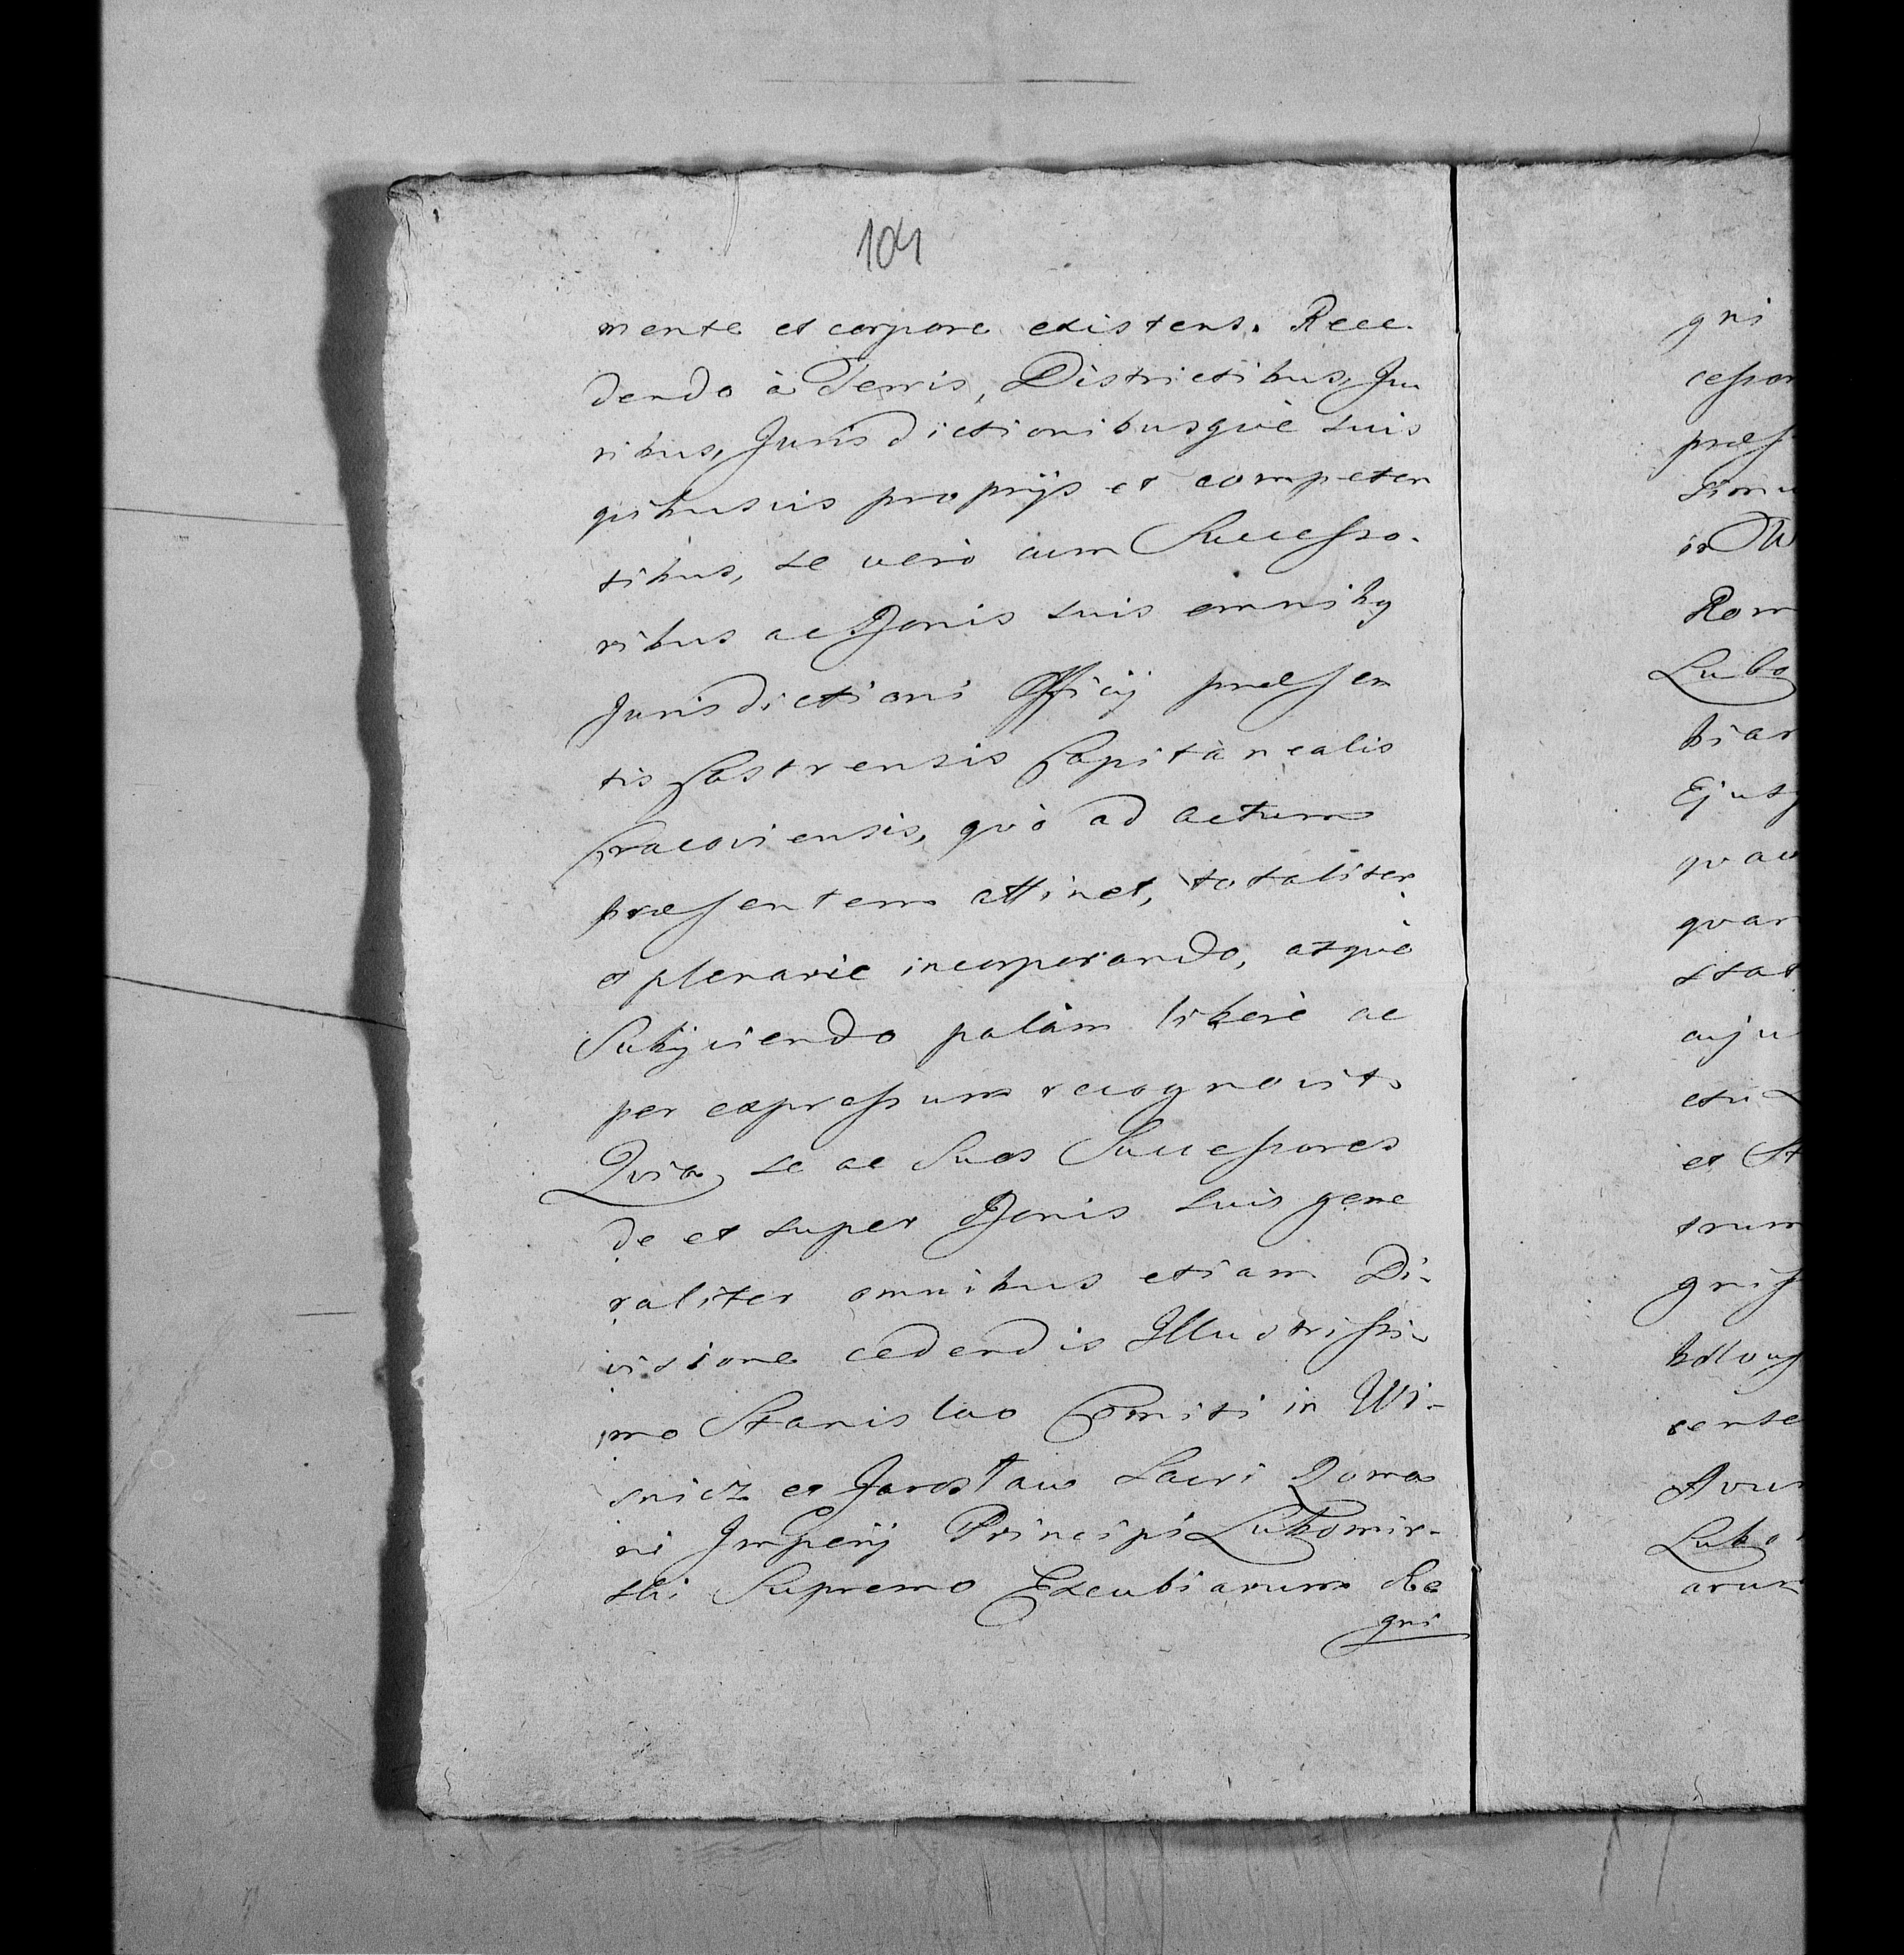 104
mente et corpore existens. Rece-
dendo à Terris, Districtibus, Ju
ribus, Jurisdictionibusquè suis
quibusvis proprijs et competen
tibus, se verò cum Successo-
ribus ac Bonis suis omnibq
Jurisdictioni Officij præsen
tis Castrensis Capitànealis
Cracoviensis, quò ad actum
præsentem attinet, totaliter
et plenarie incorporando, atquè
Subijciendo palàm liberè ac
per expressum recognovit.
Quia se ac Suos Successores
de et super Bonis suis gene
raliter omnibus etiam Di-
visione cedendis Illustrissi-
mo Stanislao Comiti in Wi-
snicz et Jarosław Sacri Roma
ni Imperij Principi Lubomir-
ski Supremo Excubiarum Re
gni
gni
cessor
præs
simu
in W
Rom
Lubo
biar
Ejusq
quar
stat
cuju
et St
trum
Lubo
arum